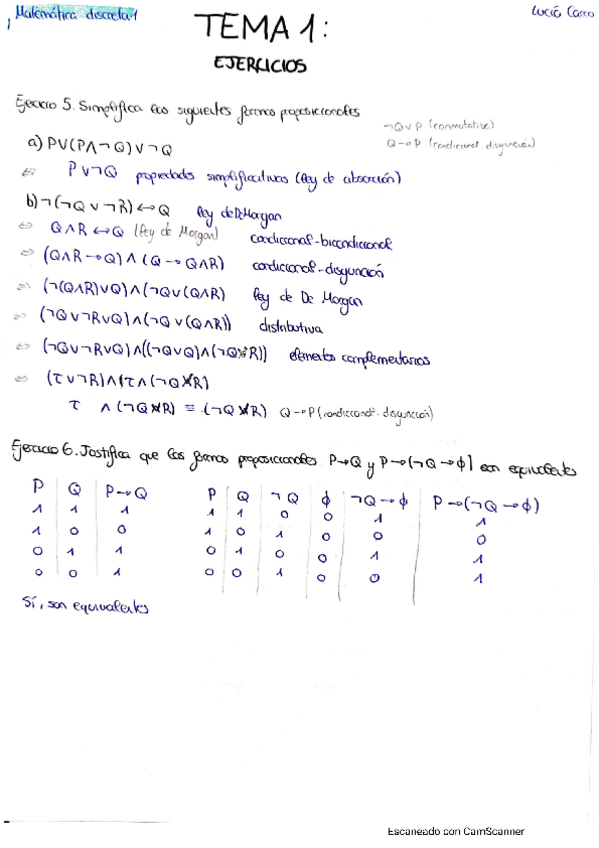 Matemática discreta 1
Lucía Carro
TEMA 1:
EJERCICIOS
Ejercicio 5. Simplifica las siguientes formas proposicionales
a) P∨(P∧¬Q)∨¬Q
¬Q∨P (conmutativa)
Q→P (condicional-disyunción)
⇔ P∨¬Q propiedades simplificativas (ley de absorción)
b) ¬(¬Q∨¬R)↔Q ley de De Morgan
⇔ Q∧R↔Q (ley de Morgan) condicional-bicondicional
⇔ (Q∧R→Q)∧(Q→Q∧R) condicional-disyunción
⇔ (¬(Q∧R)∨Q)∧(¬Q∨(Q∧R) ley de De Morgan
⇔ (¬Q∨¬R∨Q)∧(¬Q∨(Q∧R)) distributiva
⇔ (¬Q∨¬R∨Q)∧((¬Q∨Q)∧(¬Q∨R)) elementos complementarios
⇔ (τ∨¬R)∧(τ∧(¬Q∨R)
τ ∧(¬Q∨R) ≡ (¬Q∨R) Q→P (condicional-disyunción)
Ejercicio 6. Justifica que las formas proposicionales P→Q y P→(¬Q→ϕ) son equivalentes
P Q P→Q P Q ¬Q ϕ ¬Q→ϕ P→(¬Q→ϕ)
1 1 1 1 1 0 0 1 1
1 0 0 1 0 1 0 0 0
0 1 1 0 1 0 0 1 1
0 0 1 0 0 1 0 0 1
Sí, son equivalentes
Escaneado con CamScanner